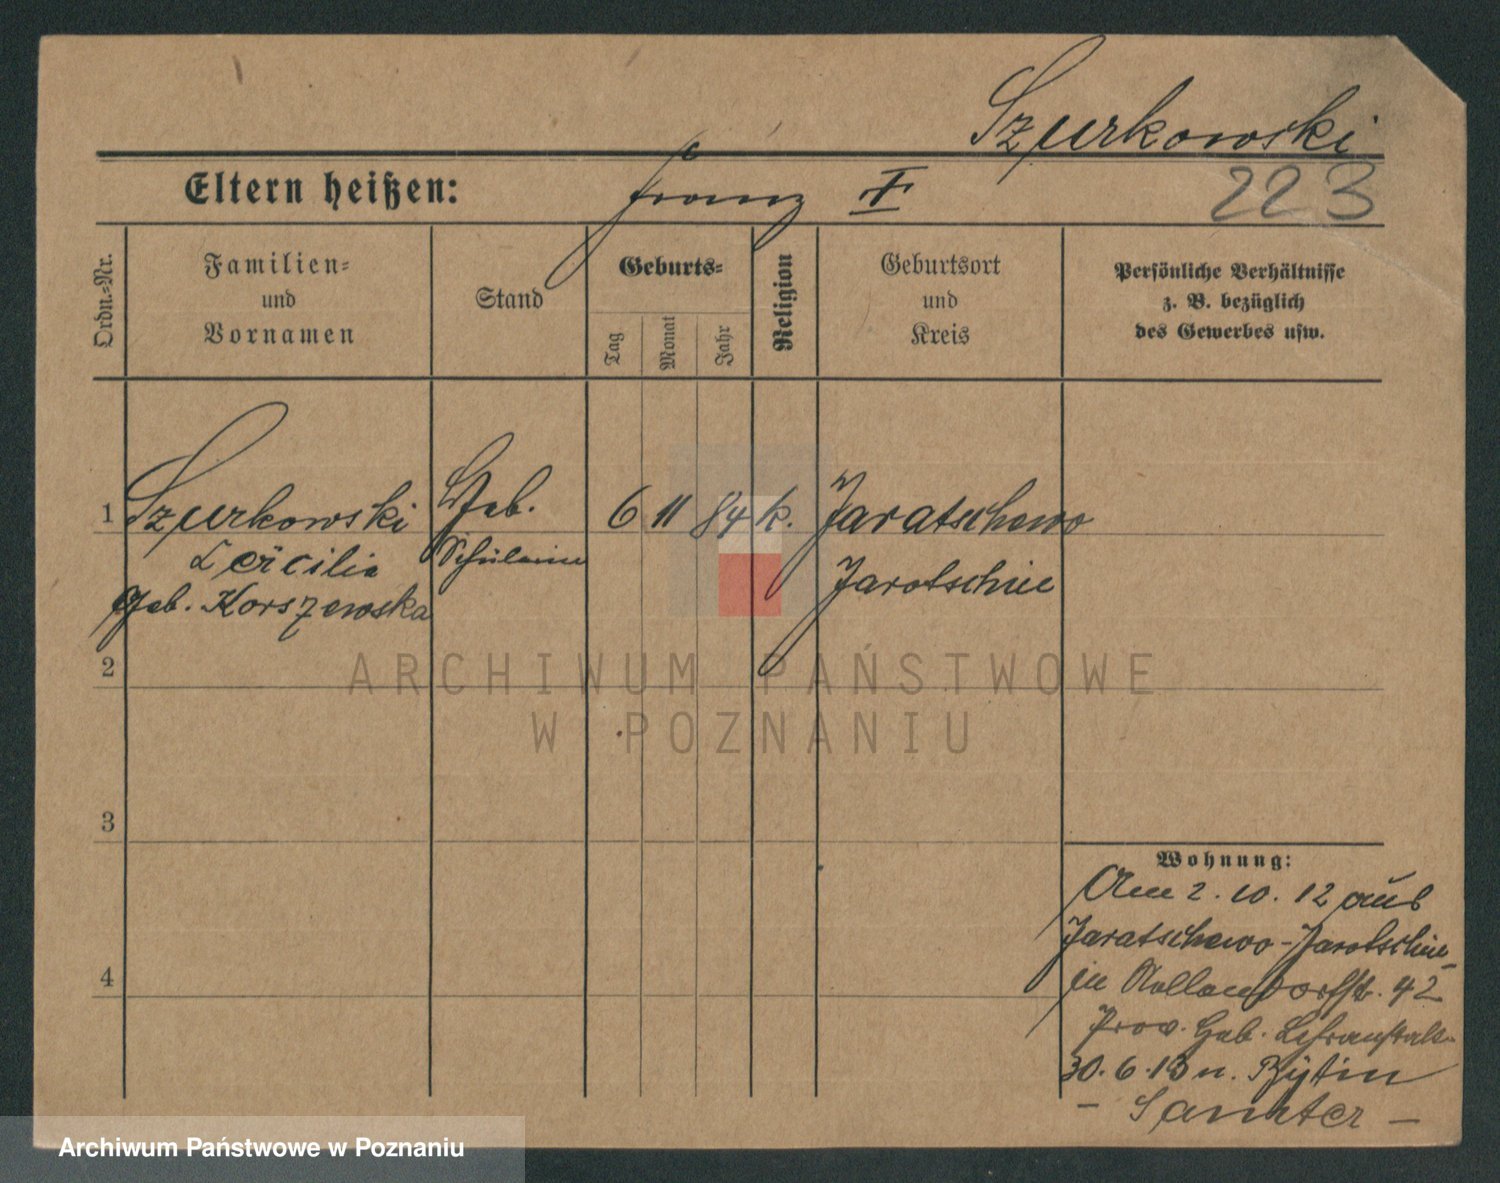 Szurkowski
Eltern heißen: Franz I
223
Ordn.-Nr.
Familien-
und
Vornamen
Stand
Geburts-
Tag
Monat
Jahr
Religion
Geburtsort
und
Kreis
Persönliche Verhältnisse
z. B. bezüglich
des Gewerbes usw.
1 Szurkowski Heb. 6 11 84 k. Jaratschewo
Cäcilia Schülerin Jarotschin
geb. Korszewska
2
ARCHIWUM PAŃSTWOWE
W POZNANIU
3
4
Wohnung:
Am 2. 10. 12 aus
Jaratschewo-Jarotschin
in Nollendorfstr. 42
Prov. Heb. Lehranstalt
30. 6. 13 n. Bytin
- Samter -
Archiwum Państwowe w Poznaniu